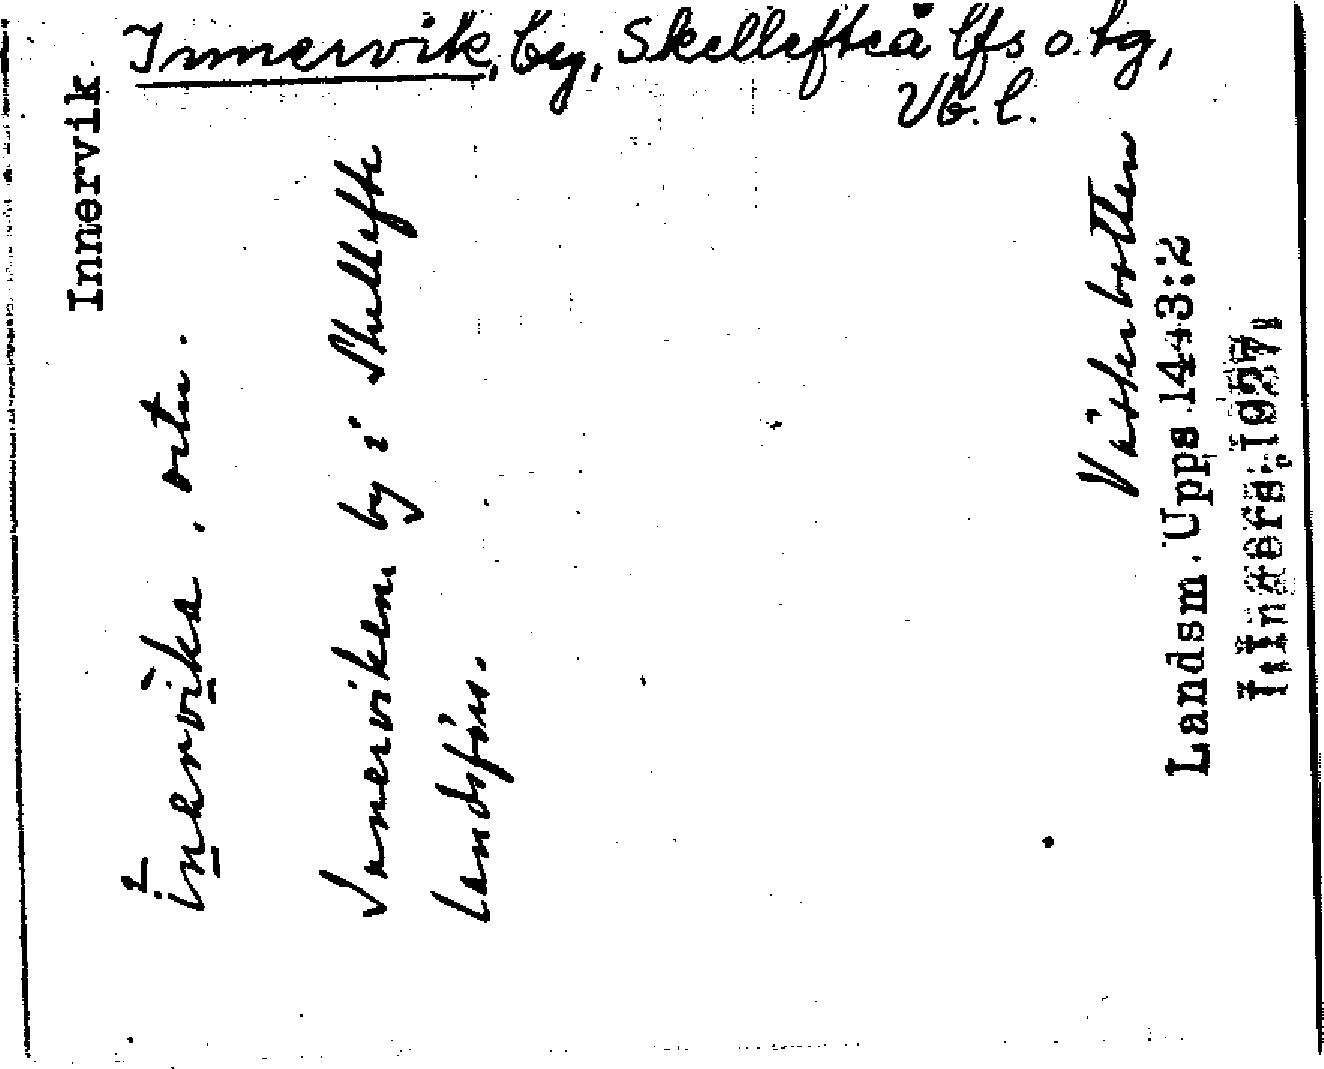 Innervik, by, Skellefteå lfs o. tg,
Vb. l.
Innervik
i̱nervi̱ka, ortn.
Innerviken, by i Skellefte
landsförs.
Västerbotten
Landsm. Upps 1443:2
1927.